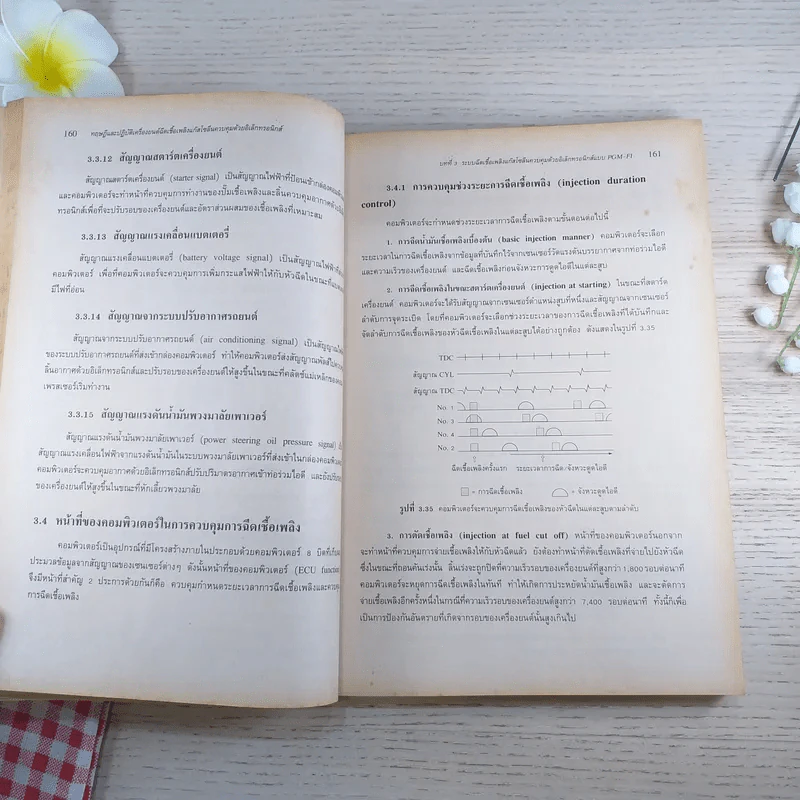 160 ทฤษฎีและปฏิบัติเครื่องยนต์ฉีดเชื้อเพลิงแก๊สโซลีนควบคุมด้วยอิเล็กทรอนิกส์
3.3.12 สัญญาณสตาร์ตเครื่องยนต์
สัญญาณสตาร์ตเครื่องยนต์ (starter signal) เป็นสัญญาณไฟฟ้าที่ป้อนเข้ากล่องคอมพิวเตอร์
และคอมพิวเตอร์จะทำหน้าที่ควบคุมการทำงานของปั๊มเชื้อเพลิงและลิ้นควบคุมอากาศด้วยอิเล็ก
ทรอนิกส์เพื่อที่จะปรับรอบของเครื่องยนต์และอัตราส่วนผสมของเชื้อเพลิงที่เหมาะสม
3.3.13 สัญญาณแรงเคลื่อนแบตเตอรี่
สัญญาณแรงเคลื่อนแบตเตอรี่ (battery voltage signal) เป็นสัญญาณไฟฟ้าที่
คอมพิวเตอร์ เพื่อที่คอมพิวเตอร์จะควบคุมการเพิ่มกระแสไฟฟ้าให้กับหัวฉีดในขณะที่
มีไฟที่อ่อน
3.3.14 สัญญาณจากระบบปรับอากาศรถยนต์
สัญญาณจากระบบปรับอากาศรถยนต์ (air conditioning signal) เป็นสัญญาณ
ของระบบปรับอากาศรถยนต์ที่ส่งเข้ากล่องคอมพิวเตอร์ ทำให้คอมพิวเตอร์ส่งสัญญาณพัลส์ไป
ลิ้นอากาศด้วยอิเล็กทรอนิกส์และปรับรอบของเครื่องยนต์ให้สูงขึ้นในขณะที่คลัตช์แม่เหล็กของ
เพรสเซอร์เริ่มทำงาน
3.3.15 สัญญาณแรงดันน้ำมันพวงมาลัยเพาเวอร์
สัญญาณแรงดันน้ำมันพวงมาลัยเพาเวอร์ (power steering oil pressure signal)
สัญญาณแรงเคลื่อนไฟฟ้าจากแรงดันน้ำมันในระบบพวงมาลัยเพาเวอร์ที่ส่งเข้าในกล่องคอมพิวเตอร์
คอมพิวเตอร์จะควบคุมอากาศด้วยอิเล็กทรอนิกส์ปรับปริมาตรอากาศเข้าท่อร่วมไอดี และยัง
ของเครื่องยนต์ให้สูงขึ้นในขณะที่หักเลี้ยวพวงมาลัย
3.4 หน้าที่ของคอมพิวเตอร์ในการควบคุมการฉีดเชื้อเพลิง
คอมพิวเตอร์เป็นอุปกรณ์ที่มีโครงสร้างภายในประกอบด้วยคอมพิวเตอร์ 8 บิตที่
ประมวลข้อมูลจากสัญญาณของเซนเซอร์ต่างๆ ดังนั้นหน้าที่ของคอมพิวเตอร์ (ECU function)
จึงมีหน้าที่สำคัญ 2 ประการด้วยกันก็คือ ควบคุมกำหนดระยะเวลาการฉีดเชื้อเพลิงและควบคุม
การฉีดเชื้อเพลิง
บทที่ 3 ระบบฉีดเชื้อเพลิงแก๊สโซลีนควบคุมด้วยอิเล็กทรอนิกส์แบบ PGM-FI 161
3.4.1 การควบคุมช่วงระยะการฉีดเชื้อเพลิง (injection duration
control)
คอมพิวเตอร์จะกำหนดช่วงระยะเวลาการฉีดเชื้อเพลิงตามขั้นตอนต่อไปนี้
1. การฉีดน้ำมันเชื้อเพลิงเบื้องต้น (basic injection manner) คอมพิวเตอร์จะเลือก
ระยะเวลาในการฉีดเชื้อเพลิงจากข้อมูลที่บันทึกไว้จากเซนเซอร์วัดแรงดันบรรยากาศจากท่อร่วมไอดี
และความเร็วของเครื่องยนต์ และฉีดเชื้อเพลิงก่อนจังหวะการดูดไอดีในแต่ละสูบ
2. การฉีดเชื้อเพลิงในขณะสตาร์ตเครื่องยนต์ (injection at starting) ในขณะที่สตาร์ต
เครื่องยนต์ คอมพิวเตอร์จะได้รับสัญญาณจากเซนเซอร์ตำแหน่งสูบที่หนึ่งและสัญญาณจากเซนเซอร์
ลำดับการจุดระเบิด โดยที่คอมพิวเตอร์จะเลือกช่วงระยะเวลาของการฉีดเชื้อเพลิงที่ได้บันทึกและ
จัดลำดับการฉีดเชื้อเพลิงของหัวฉีดเชื้อเพลิงในแต่ละสูบได้อย่างถูกต้อง ดังแสดงในรูปที่ 3.35
TDC
สัญญาณ CYL
สัญญาณ TDC
No. 1
No. 3
No. 4
No. 2
ฉีดเชื้อเพลิงครั้งแรก ระยะเวลาการฉีด/จังหวะดูดไอดี
= การฉีดเชื้อเพลิง = จังหวะดูดไอดี
รูปที่ 3.35 คอมพิวเตอร์จะควบคุมการฉีดเชื้อเพลิงของหัวฉีดในแต่ละสูบตามลำดับ
3. การตัดเชื้อเพลิง (injection at fuel cut off) หน้าที่ของคอมพิวเตอร์นอกจาก
จะทำหน้าที่ควบคุมการจ่ายเชื้อเพลิงให้กับหัวฉีดแล้ว ยังต้องทำหน้าที่ตัดเชื้อเพลิงที่จ่ายไปยังหัวฉีด
ซึ่งในขณะที่ถอนคันเร่งนั้น ลิ้นเร่งจะถูกปิดที่ความเร็วรอบของเครื่องยนต์ที่สูงกว่า 1,800 รอบต่อนาที
คอมพิวเตอร์จะหยุดการฉีดเชื้อเพลิงในทันที ทำให้เกิดการประหยัดน้ำมันเชื้อเพลิง และจะตัดการ
จ่ายเชื้อเพลิงอีกครั้งหนึ่งในกรณีที่ความเร็วรอบของเครื่องยนต์สูงกว่า 7,400 รอบต่อนาที ทั้งนี้ก็เพื่อ
เป็นการป้องกันอันตรายที่เกิดจากรอบของเครื่องยนต์นั้นสูงเกินไป